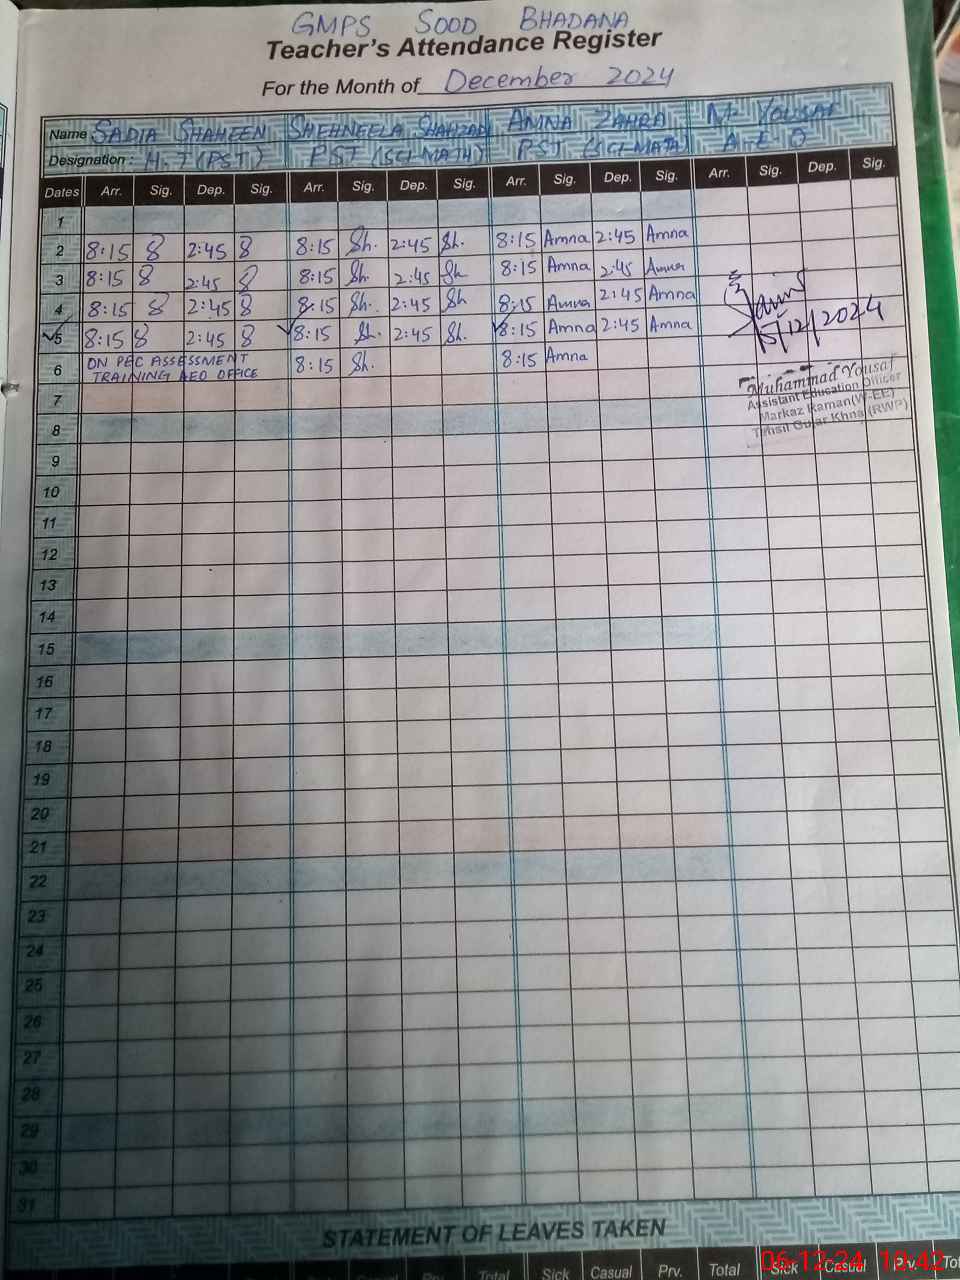 GMPS SOOD BHADANA
Teacher's Attendance Register
For the Month of December 2024
Name SADIA SHAHEEN SHEHNEELA SHAHZAD AMNA ZAHRA M. YOUSAF
Designation : H.T (PST) PST (SCI-MATH) PST (SCI-MATH) A E O
Dates Arr. Sig. Dep. Sig. Arr. Sig. Dep. Sig. Arr. Sig. Dep. Sig. Arr. Sig. Dep. Sig.
1
2 8:15 8 2:45 8 8:15 Sh. 2:45 Sh. 8:15 Amna 2:45 Amna
3 8:15 8 2:45 8 8:15 Sh. 2:45 Sh 8:15 Amna 2:45 Amna
4 8:15 8 2:45 8 8:15 Sh. 2:45 Sh 8:15 Amna 2:45 Amna
5 8:15 8 2:45 8 8:15 Sh. 2:45 Sh. 8:15 Amna 2:45 Amna
5/12/2024
6 ON PEC ASSESSMENT
TRAINING AEO OFFICE 8:15 Sh. 8:15 Amna
Muhammad Yousaf
Assistant Education Officer
Markaz Raman(W-EE)
Tehsil Gujar Khna (RWP)
7
8
9
10
11
12
13
14
15
16
17
18
19
20
21
22
23
24
25
26
27
28
29
30
31
STATEMENT OF LEAVES TAKEN
Prv. Total Sick Casual Prv. Total Sick Casual Prv. To
06-12-24 10:42